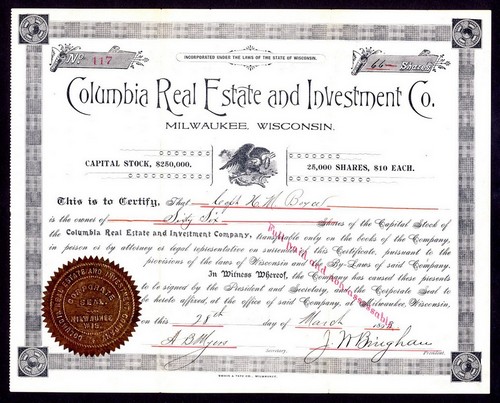 No. 117
INCORPORATED UNDER THE LAWS OF THE STATE OF WISCONSIN.
66 Shares
Columbia Real Estate and Investment Co.
MILWAUKEE, WISCONSIN.
CAPITAL STOCK, $250,000.
25,000 SHARES, $10 EACH.
This is to Certify, That Capt H. M.
is the owner of Sixty Six Shares of the Capital Stock of
the Columbia Real Estate and Investment Company, transferable only on the books of the Company,
in person or by attorney or legal representative on surrender of this Certificate, pursuant to the
provisions of the laws of Wisconsin and the By-Laws of said Company.
Full Paid and Non-assessable
In Witness Whereof, the Company has caused these presents
to be signed by the President and Secretary, and the Corporate Seal to
be hereto affixed, at the office of said Company, at Milwaukee, Wisconsin,
on this 28th day of March
CORPORATE
SEAL
MILWAUKEE
WIS.
A B Myers Secretary.
J. W. Bingham President.